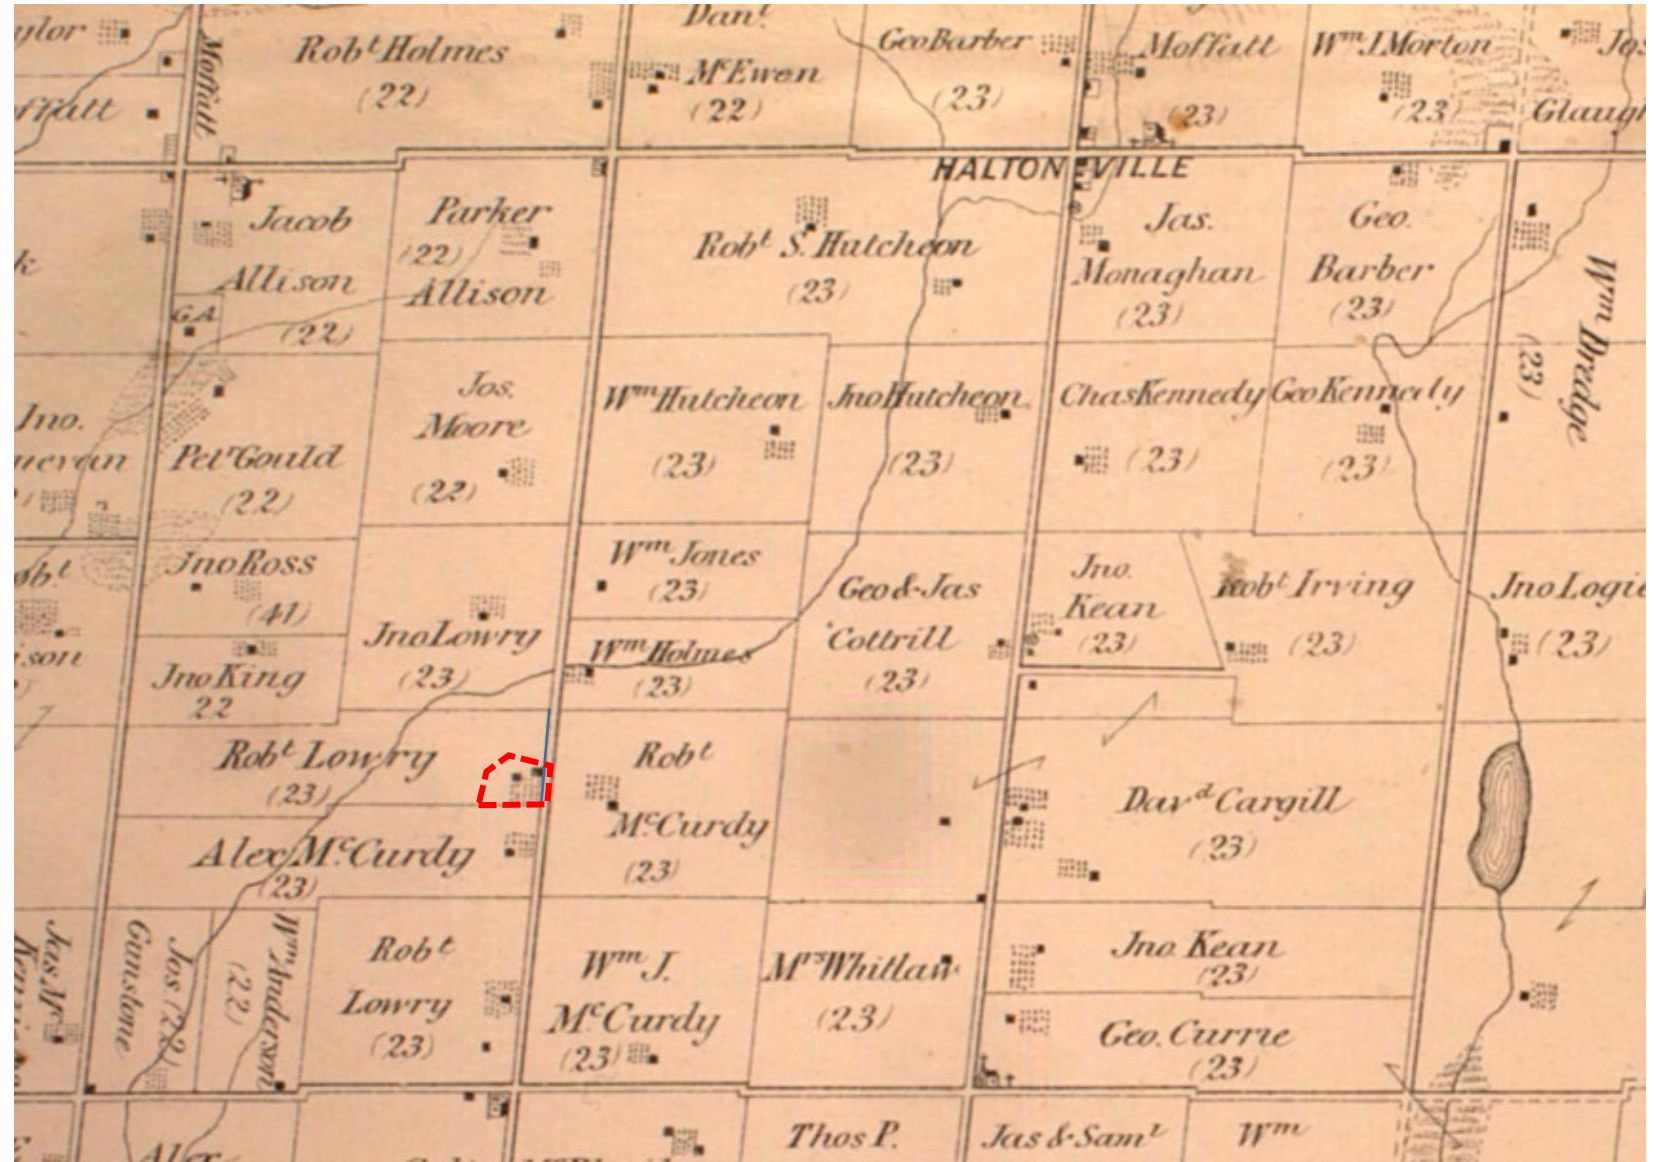 Moffatt
Robt Holmes
(22)
Danl.
McEwen
(22)
Geo Barber
(23)
Moffatt
(23)
Wm J Morton
(23)
HALTONVILLE
Jacob
Allison
(22)
G.A.
Parker
(22)
Allison
Robt S. Hutcheon
(23)
Jas.
Monaghan
(23)
Geo.
Barber
(23)
Wm Dredge
(23)
Jno.
Petr Gould
(22)
Jos.
Moore
(22)
Wm Hutcheon
(23)
Jno Hutcheon
(23)
Chas Kennedy
(23)
Geo Kennedy
(23)
Jno Ross
(41)
Jno King
22
Jno Lowry
(23)
Wm Jones
(23)
Wm Holmes
(23)
Geo & Jas
Cottrill
(23)
Jno.
Kean
(23)
Robt Irving
(23)
Jno Logie
(23)
Robt Lowry
(23)
Alex McCurdy
(23)
Robt
McCurdy
(23)
Davd Cargill
(23)
Jos (22)
Gunstone
Wm Anderson
(22)
Robt
Lowry
(23)
Wm J.
McCurdy
(23)
Mrs Whitlaw
(23)
Jno. Kean
(23)
Geo. Currie
(23)
Alex
Thos P.
Jas & Saml
Wm